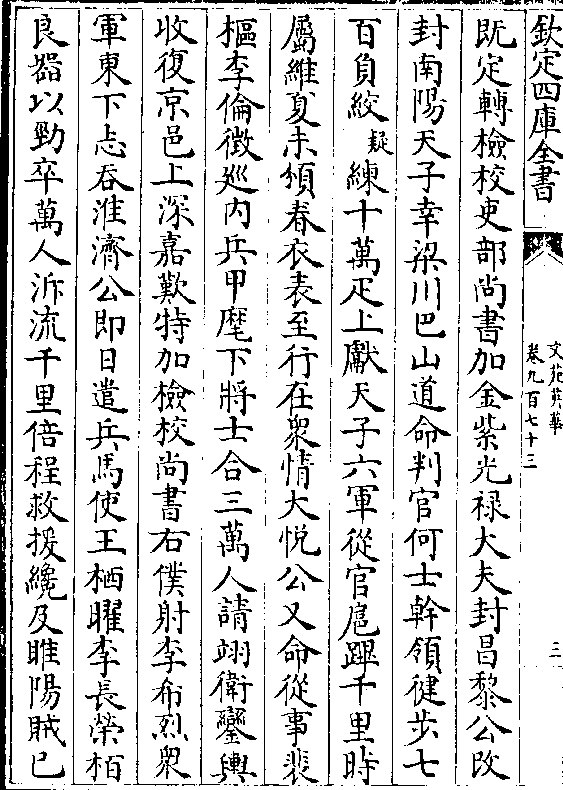 欽定四庫全書
文苑英華
卷九百七十三
三
既定轉檢校吏部尚書加金紫光禄大夫封昌黎公改
封南陽天子幸梁川巴山道命判官何士幹領健步七
百負絞疑練十萬疋上獻天子六軍從官扈蹕千里時
屬維夏未頒春衣表至行在衆情大悦公又命從事裴
樞李倫徴廵内兵甲麾下將士合三萬人請翊衛鑾輿
收復京邑上深嘉歎特加檢校尚書右僕射李希烈衆
軍東下志吞淮濟公即日遣兵馬使王栖曜李長榮栢
良器以勁卒萬人泝流千里倍程救援纔及睢陽賊已